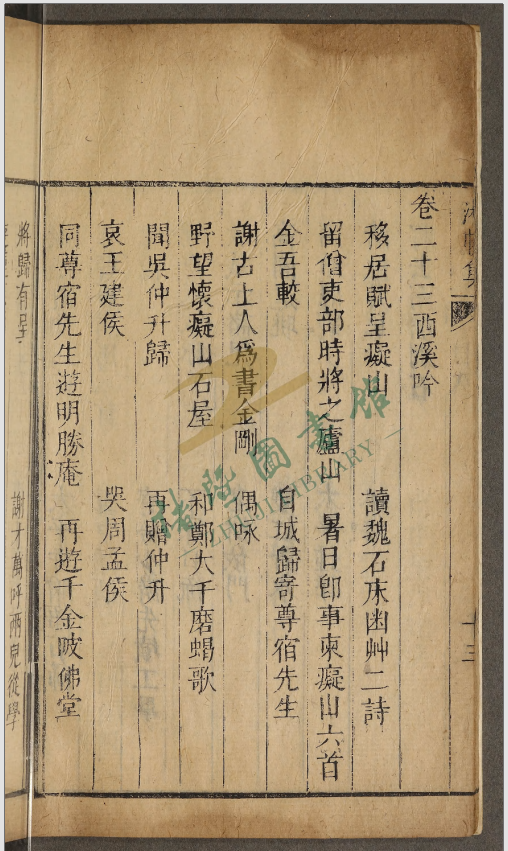 集
十三
卷二十三西溪吟
移居賦呈癡山　讀魏石床幽艸二詩
留僧吏部時將之廬山　暑日卽事柬癡山六首
金吾較　自城歸寄尊宿先生
謝古上人爲書金剛　偶咏
野望懷癡山石屋　和鄭大千磨蝎歌
聞吳仲升歸　再贈仲升
哀王建侯　哭周孟侯
同尊宿先生遊明勝庵　再遊千金陂佛堂
將歸有呈　謝才萬呼兩兒從學
諸暨圖書館
ZHUJI LIBRARY